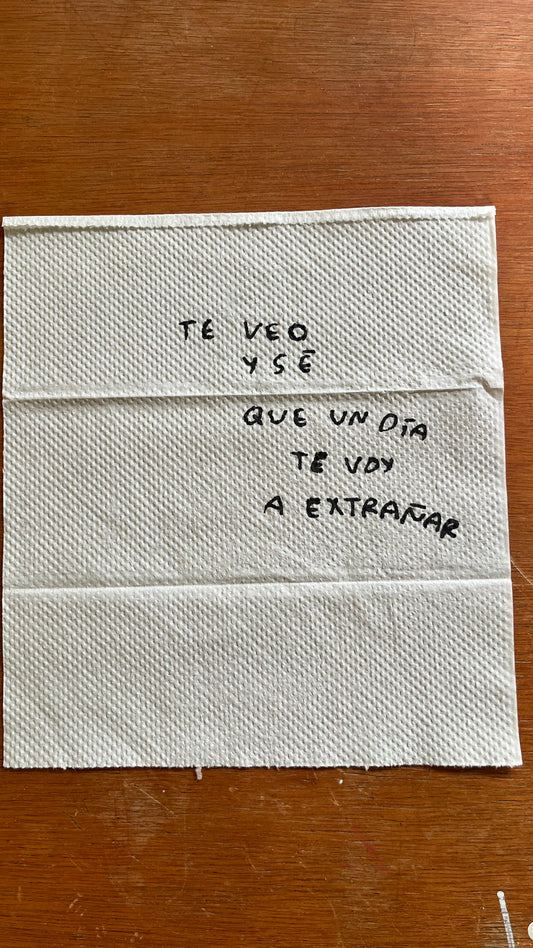 TE VEO
Y SÉ
QUE UN DÍA
TE VOY
A EXTRAÑAR